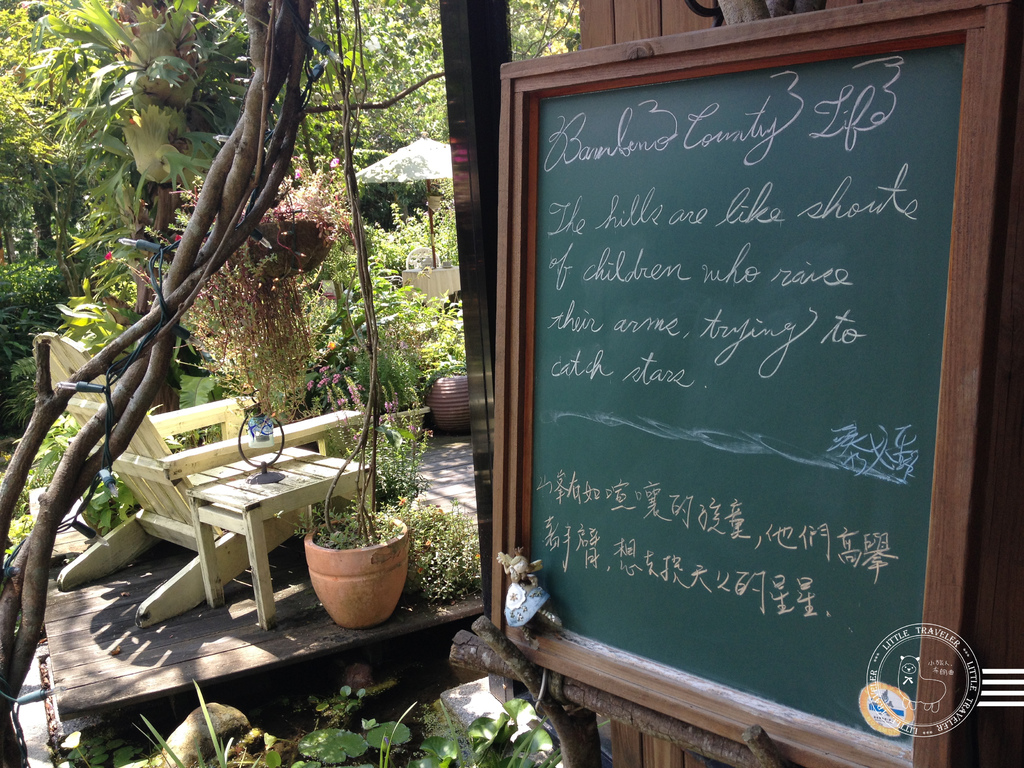 Bambino County Life
The hills are like shouts
of children who raise
their arms, trying to
catch stars.
山峯有如喧嚷的孩童,他們高舉
著手臂,想去摸天上的星星.
LITTLE TRAVELER
LITTLE TRAVELER